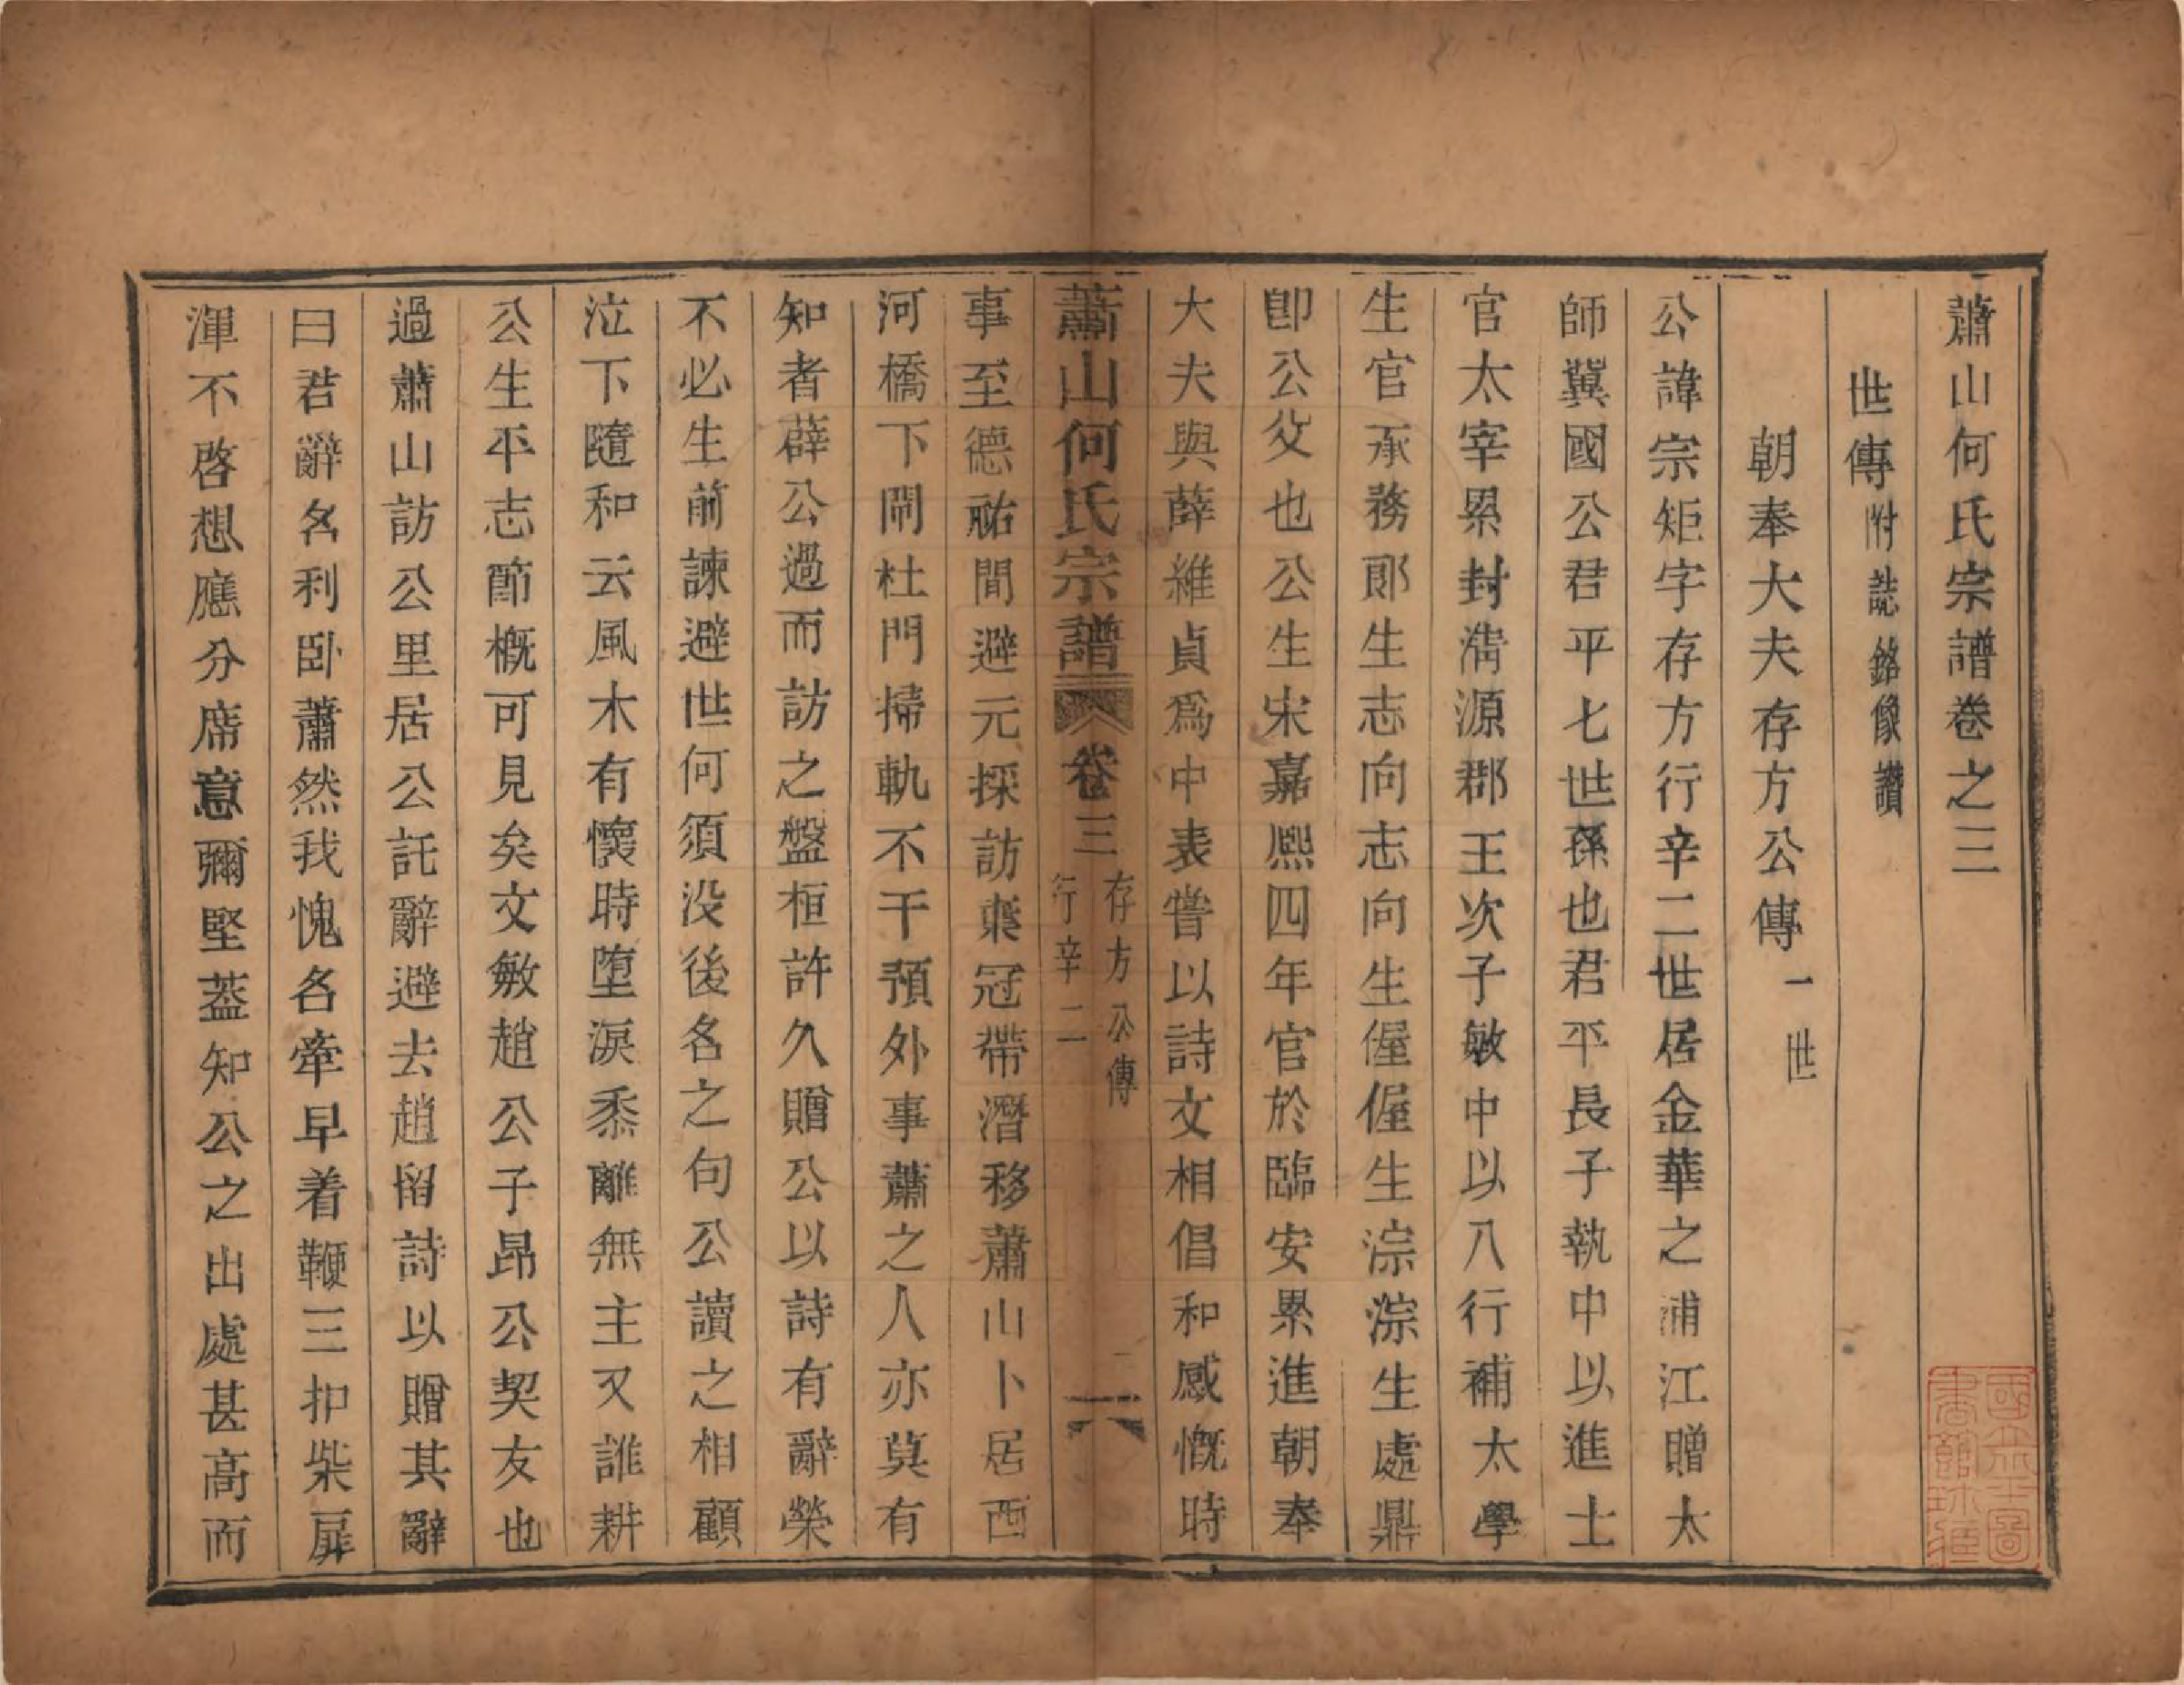 蕭山何氏宗譜卷之三
世傳附誌銘像讚
朝奉大夫存方公傳一世
公諱宗矩字存方行辛二世居金華之浦江贈太
師冀國公君平七世孫也君平長子執中以進士
官太宰累封淸源郡王次子敏中以八行補太學
生官承務郞生志向志向生偓偓生淙淙生處鼎
卽公父也公生宋嘉熙四年官於臨安累進朝奉
大夫與薛維貞爲中表甞以詩文相倡和感慨時
蕭山何氏宗譜 卷三 存方公傳 行辛二 一
事至德祐間避元採訪棄冠帶潛移蕭山卜居西
河橋下閈杜門掃軌不干預外事蕭之人亦莫有
知者薛公過而訪之盤桓許久贈公以詩有辭榮
不必生前諫避世何須没後名之句公讀之相顧
泣下隨和云風木有懷時堕淚黍離無主又誰耕
公生平志節概可見矣文敏趙公子昂公契友也
過蕭山訪公里居公託辭避去趙留詩以贈其辭
曰君辭名利卧蕭然我愧各牽早着鞭三扣柴扉
渾不啓想應分席意彌堅葢知公之出處甚高而
國立北平圖書館珍藏